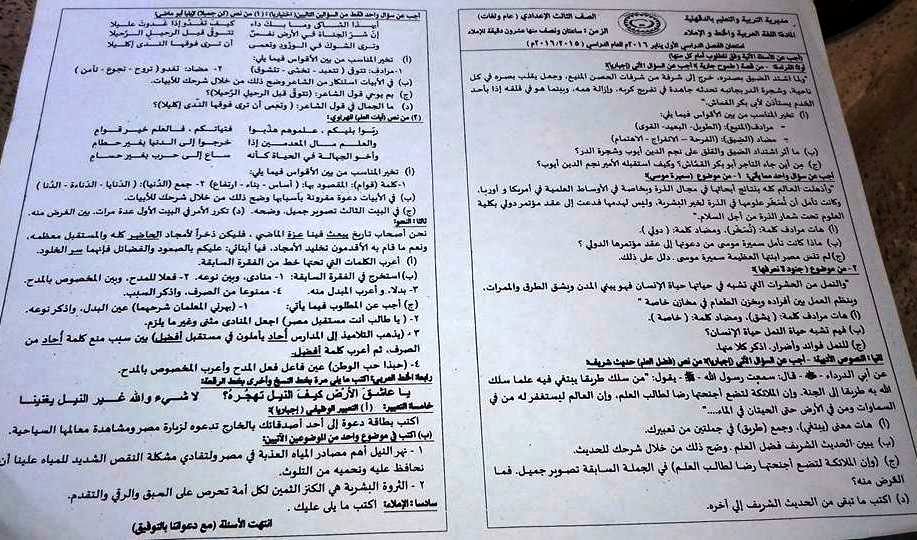 مديرية التربية والتعليم بالدقهلية
الصف الثالث الإعدادي (عام ولغات)
المادة: اللغة العربية والخط و الإملاء
الزمن: ساعتان ونصف منها عشرون دقيقة للإملاء
امتحان الفصل الدراسي الأول يناير ٢٠١٦م للعام الدراسي (٢٠١٥/٢٠١٦م)
أجب عن الأسئلة الآتية وفق المطلوب أمام كل منها:
أولا القراءة - من قصة (طموح جارية) أجب عن السؤال الآتي (إجباريا):
"ولما اشتد الضيق بصدره، خرج إلى شرفة من شرفات الحصن المنيع، وجعل يقلب بصره في كل
ناحية، وشجرة الدر بجانبه تحدثه جاهدة في تفريج كربه، وإزالة همه، وبينما هو في قلقه إذا بأحد
الخدم يستأذن لأبي بكر القماش".
(أ) تخير المناسب من بين الأقواس فيما يلي:
- مرادف (المنيع): (الطويل - البعيد - القوى)
- مضاد (الضيق): (الفرحة - الانفراج - الاهتمام)
(ب) ما أثر اشتداد الضيق والقلق على نجم الدين أيوب وشجرة الدر؟
(ج) من أين جاء التاجر أبو بكر القمّاش؟ وكيف استقبله الأمير نجم الدين أيوب؟
أجب عن سؤال واحد مما يأتي: ١- من موضوع (سميرة موسى):
"وأذهلت العالم كله بنتائج أبحاثها في مجال الذرة وبخاصة في الأوساط العلمية في أمريكا و أوربا،
وكانت تأمل أن تُسخر علومها في الذرة لخير البشرية، وليس لهدمها فدعت إلى عقد مؤتمر دولي بكلية
العلوم تحت شعار الذرة من أجل السلام."
(أ) هات مرادف كلمة: (تُسخر)، ومضاد كلمة: (دولي).
(ب) ماذا كانت تأمل سميرة موسى من دعوتها إلى عقد مؤتمرها الدولي؟
(ج) لم تنس مصر ابنتها العظيمة سميرة موسى. دلل على ذلك.
٢- من موضوع (جنود لا نعرفها):
"والنمل من الحشرات التي تشبه في حياتها حياة الإنسان فهو يبني المدن ويشق الطرق والممرات،
وينظم العمل بين أفراده ويخزن الطعام في مخازن خاصة"
(أ) هات مرادف كلمة: (يشق)، ومضاد كلمة: (خاصة).
(ب) فيم تشبه حياة النمل حياة الإنسان؟
(ج) للنمل فوائد وأضرار، اذكر كلا منها.
ثانيا النصوص الأدبية: - أجب عن السؤال الآتي (إجباريا): من نص (فضل العلم) حديث شريف:
عن أبي الدرداء - - قال: سمعت رسول الله - ﷺ - يقول: "من سلك طريقا يبتغي فيه علما سلك
الله به طريقا إلى الجنة. وإن الملائكة لتضع أجنحتها رضا لطالب العلم، وإن العالم ليستغفر له من في
السماوات ومن في الأرض حتى الحيتان في الماء....."
(أ) هات معنى (يبتغي)، وجمع (طريق) في جملتين من تعبيرك.
(ب) يبين الحديث الشريف فضل العلم. وضح ذلك من خلال شرحك للحديث.
(ج) (وإن الملائكة لتضع أجنحتها رضا لطالب العلم) في الجملة السابقة تصوير جميل. فما
الغرض منه؟
(د) اكتب ما تبقى من الحديث الشريف إلى آخره.
أجب عن سؤال واحد فقط من السؤالين التاليين: (اختياريا): (١) من نص (كن جميلا) لإيليا أبو ماضي:
أيهذا الشاكى وما بك داء كيف تغدو إذا غدوت عليلا
إنّ شرّ الجناة في الأرض نفسٌ تتوقّى قبل الرحيل الرّحيلا
وترى الشوك في الورود وتعمى أن ترى فوقها الندى إكليلا
(أ) تخير المناسب من بين الأقواس فيما يلي:
١- مرادف: تتوق (تتعبد - تخشى - تتشوق) ٢- مضاد: تغدو (تروح - تجوع - تأمن)
(ب) في الأبيات استنكار من الشاعر وضح ذلك من خلال شرحك للأبيات.
(ج) بم يوحي قول الشاعر: (تتوقّى قبل الرحيل الرّحيلا)؟
(د) ما الجمال في قول الشاعر: (وتعمى أن ترى فوقها الندى إكليلا)؟
(٢) من نص (آيات العلم) للهراوي:
ربّوا بنيكم، علموهم هذّبوا فتياتكم، فالعلم خير قوام
والعلم مال المعدمين إذا خرجوا إلى الدنيا بغير حطام
وأخو الجهالة في الحياة كأنه ساع إلى حرب بغير حسام
(أ) تخير المناسب من بين الأقواس فيما يلي:
١- كلمة (قوام): المقصود بها: (أساس - بناء - ارتفاع) ٢- جمع (الدنيا): (الدنايا - الدناءة - الدُنا)
(ب) في الأبيات دعوة مقرونة بأسبابها وضح ذلك من خلال شرحك للأبيات.
(ج) في البيت الثالث تصوير جميل. وضحه. (د) تكرر الأمر في البيت الأول عدة مرات. بين الغرض منه.
ثالثا: النحو:
نحن أصحاب تاريخ يبعث فينا عزة الماضي، فليكن ذخراً لأمجاد الحاضر كله والمستقبل معظمه،
ونعم ما قام به الأقدمون تخليد الأمجاد. فيا أبنائي: عليكم بالصمود والفضائل فإنهما سر الخلود.
(أ) أعرب الكلمات التي تحتها خط من الفقرة السابقة.
(ب) استخرج في الفقرة السابقة: ١- منادى، وبين نوعه. ٢- فعلا للمدح، وبين المخصوص بالمدح.
٣- بدلا، و أعرب المبدل منه. ٤- ممنوعا من الصرف، واذكر السبب.
(ج) أجب عن المطلوب فيما يأتي: ١- (بهرني المعلمان شرحهما) عين البدل، واذكر نوعه.
٢- (يا طالب أنت مستقبل مصر) اجعل المنادى مثنى وغير ما يلزم.
٣- (يذهب التلاميذ إلى المدارس أُحاد يأملون في مستقبل أفضل) بين سبب منع كلمة أُحاد من
الصرف، ثم أعرب كلمة أفضل.
٤- (حبذا حب الوطن) عين فاعل فعل المدح وأعرب المخصوص بالمدح.
رابعا: الخط العربي: اكتب ما يلي مرة بخط النسخ وأخرى بخط الرقعة:
يا عاشق الأرض كيف النيل تهجُره؟ لا شيء والله غير النيل يغنينا
خامسا: التعبير: (أ) التعبير الوظيفي (إجباريا):
اكتب بطاقة دعوة إلى أحد أصدقائك بالخارج تدعوه لزيارة مصر ومشاهدة معالمها السياحية.
(ب) اكتب في موضوع واحد من الموضوعين الآتيين:
١- نهر النيل أهم مصادر المياه العذبة في مصر ولتفادي مشكلة النقص الشديد للمياه علينا أن
نحافظ عليه ونحميه من التلوث.
٢- الثروة البشرية هي الكنز الثمين لكل أمة تحرص على السبق والرقي والتقدم.
سادسا: الإملاء: اكتب ما يلى عليك.
انتهت الأسئلة (مع دعواتنا بالتوفيق)